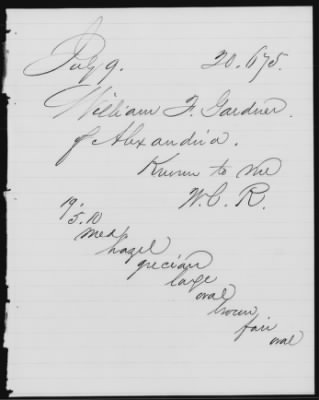 July 9. 20.675.
William F. Gardner.
of Alexandria.
Known to me
W. C. R.
19.
5.10
med
hazel
grecian
large
oval
brown
fair
oval